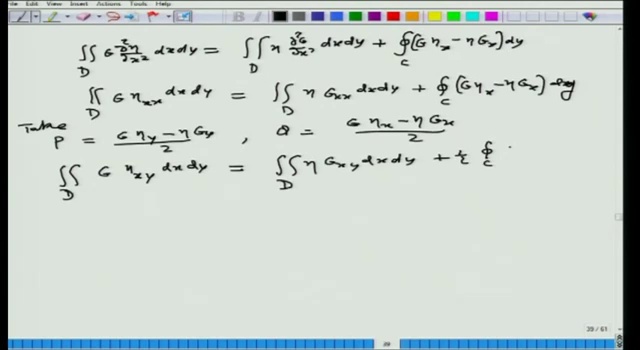 File Edit View Insert Actions Tools Help
∬_D G ∂²η/∂x² dxdy = ∬_D η ∂²G/∂x² dxdy + ∮_C (G η_x − η G_x) dy
∬_D G η_xx dxdy = ∬_D η G_xx dxdy + ∮_C (G η_x − η G_x) dy
Take P = (G η_y − η G_y)/2 , Q = (G η_x − η G_x)/2
∬_D G η_xy dxdy = ∬_D η G_xy dxdy + ½ ∮_C
49